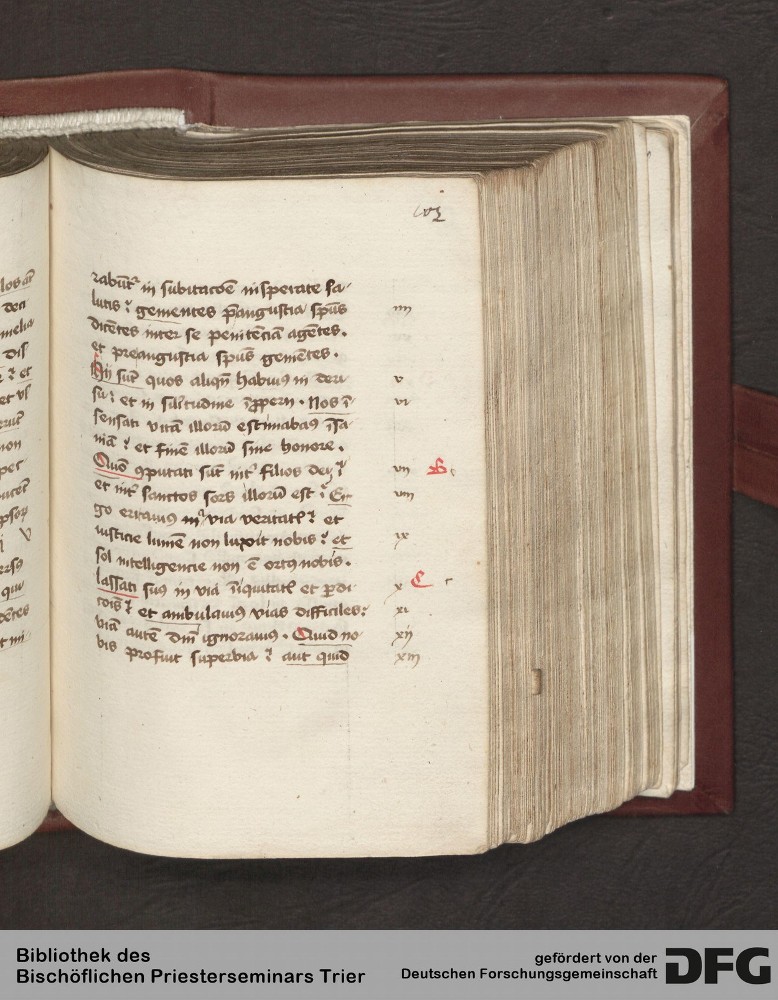 rabũt᷑ in subitacōe insperate sa-
lutis : gementes p̃angustia sp̃us
dicētes inter se penitēciā agētes.
et preangustia sp̃us gemētes. iiii
Hii sũt quos aliqñ habuiꝰ in deri v
su : et in sił̃itudine īproperii. Nos ī- vi
sensati vitā illorũ estimabaꝰ īsa-
niā : et finē illorũ sine honore.
Quõ ꝯputati sũt int᷑ filios dei : vii B
et int᷑ sanctos sors illorũ est : Er- viii
go errauiꝰ in via veritatꝭ : et
iusticie lumē non luxit nobis : et ix
sol intelligencie non ē ortꝰ nobis.
lassati suꝰ in via īiquitatꝭ et ꝑdi- x C
cōis : et ambulauiꝰ vias difficiles : xi
viā autē dñi ignorauiꝰ. Quid no- xii
bis profuit superbia : aut quid xiii
Bibliothek des
Bischöflichen Priesterseminars Trier
gefördert von der
Deutschen Forschungsgemeinschaft
DFG